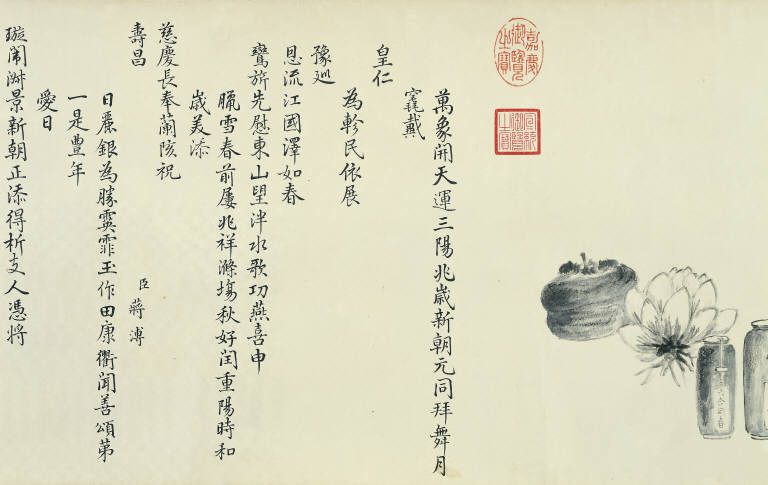 嘉慶御覽之寶
宣統御覽之寶
六合同春
萬象開天運三陽兆歲新朝元同拜舞月
竁戴
皇仁
為軫民依展
豫巡
恩流江國澤如春
鸞旂先慰東山望泮水歌功燕喜申
臘雪春前屢兆祥滌塲秋好閏重陽時和
歲美添
慈慶長奉蘭陔祝
壽昌
臣蔣溥
日麗銀為勝霙霏玉作田康衢聞善頌第
一是豊年
愛日
璇淑景新朝正添得析支人憑將